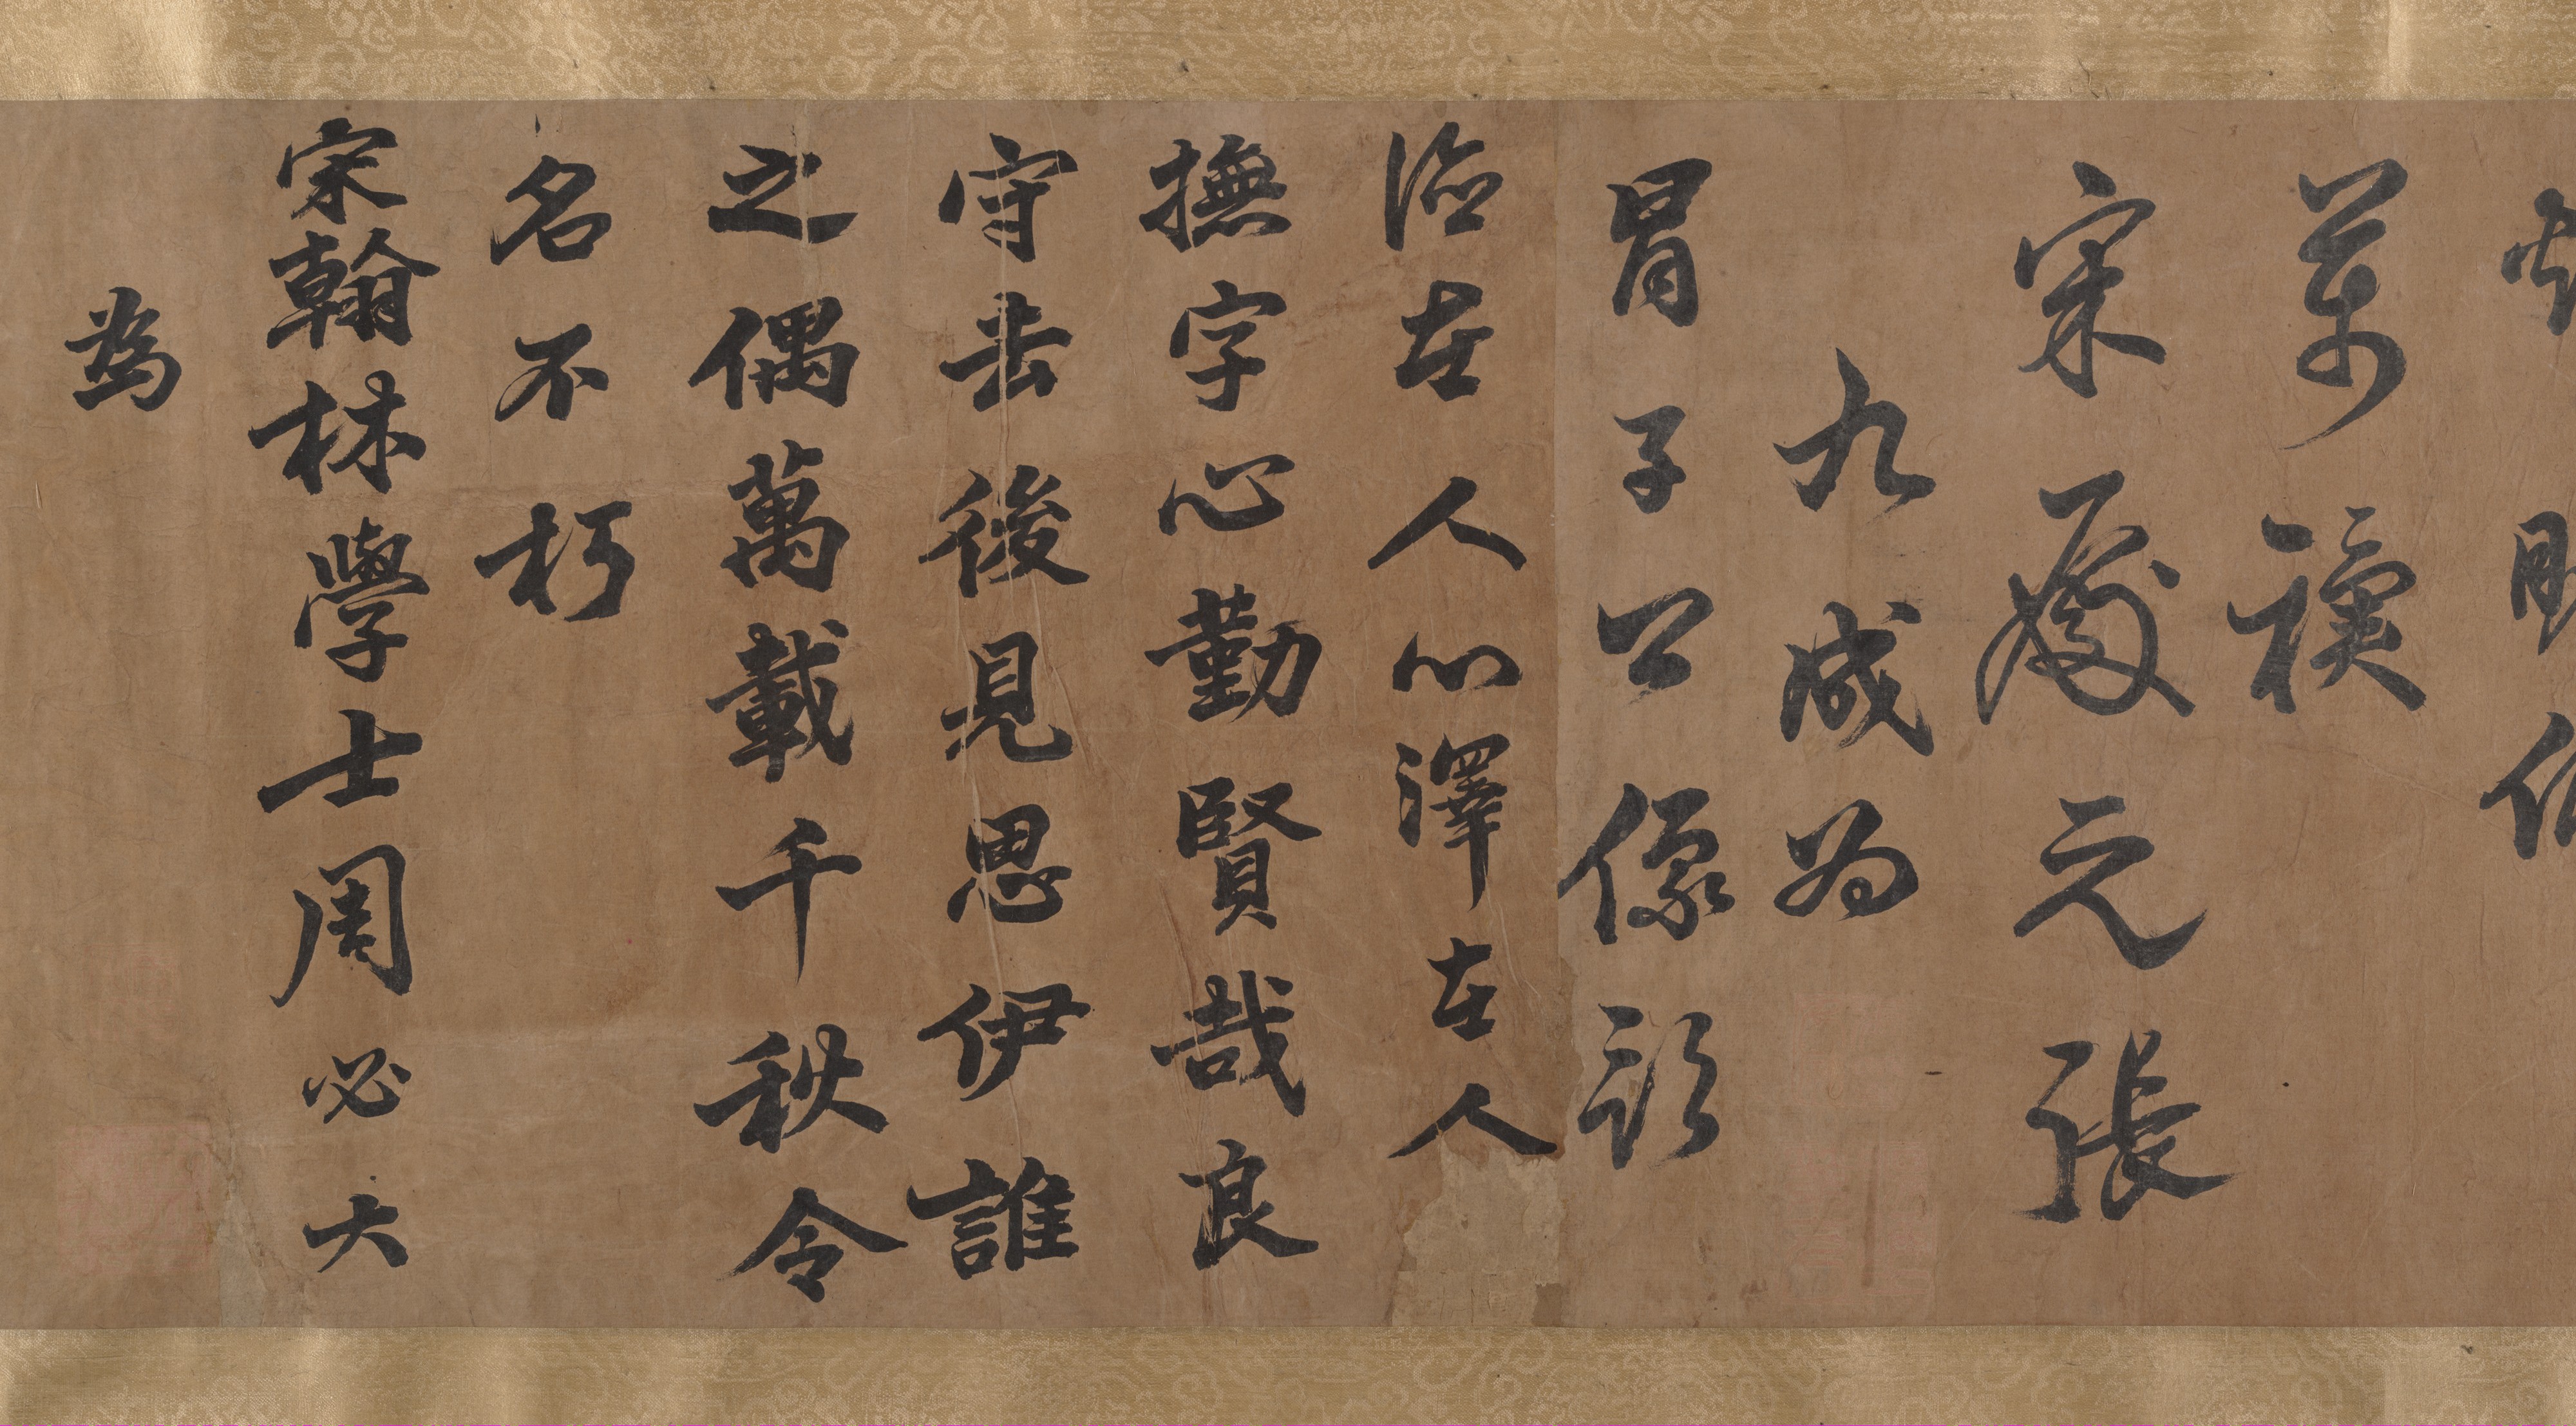 萬禩
宋殿元張
九成为
胄子公像
治在人心澤在人
撫字心勤賢哉良
守去後見思伊誰
之偶萬載千秋令
名不朽
宋翰林學士周必大
為